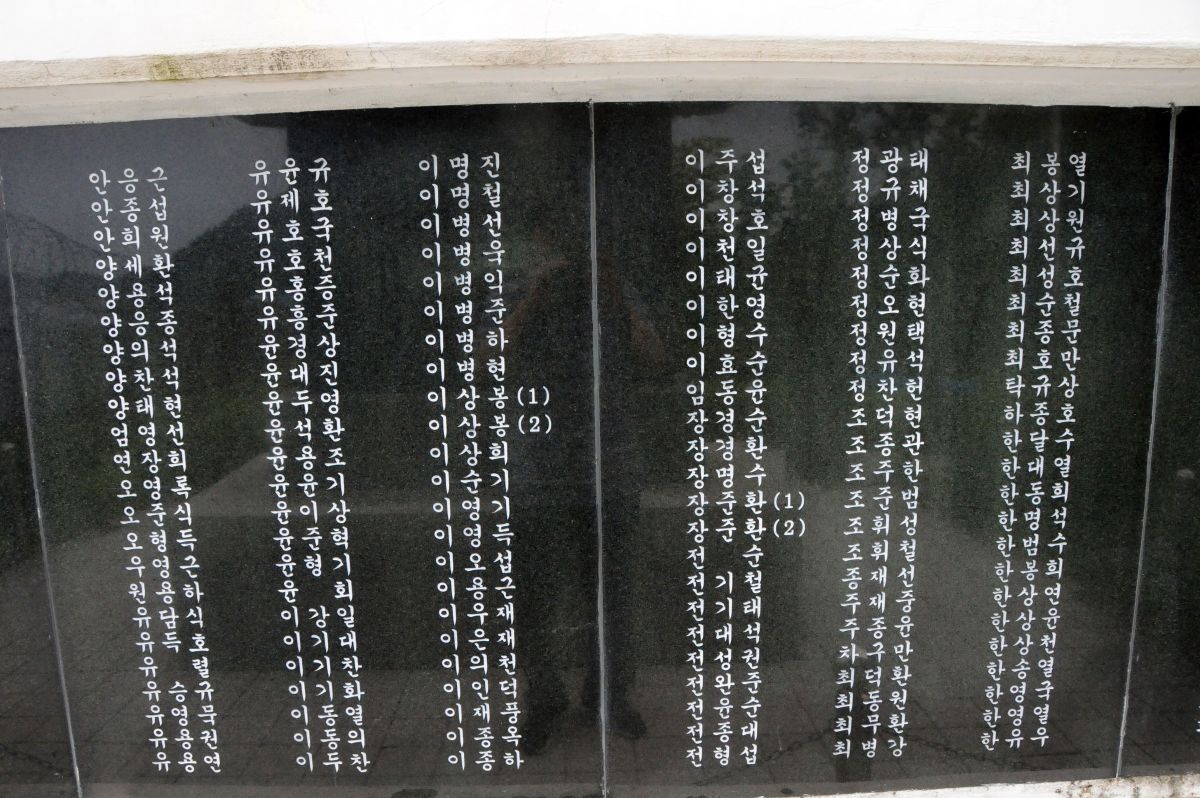 안응근
안종섭
안희원
양세환
양용석
양응종
양의석
양찬석
양태현
엄영선
연장희
오영록
오준식
오형득
우영근
원용하
유담식
유득호
유 렬
유승규
유영묵
유용권
유용연
유윤규
유제호
유호국
유호천
유홍증
유흥준
윤경상
윤대진
윤두영
윤석환
윤용조
윤윤기
윤이상
윤준혁
윤형기
윤 회
이강일
이기대
이기찬
이기화
이동열
이동의
이두찬
이명진
이명철
이병선
이병욱
이병익
이병준
이병하
이병현
이상봉(1)
이상봉(2)
이상희
이순기
이영기
이영득
이오섭
이용근
이우재
이은재
이의천
이인덕
이재풍
이종옥
이종하
이주섭
이창석
이창호
이천일
이태균
이한영
이형수
이효순
임동윤
장경순
장경환
장명수
장준환(1)
장준환(2)
전 순
전기철
전기태
전대석
전성권
전완준
전윤순
전종대
전형섭
정광태
정규채
정병국
정상식
정순화
정오현
정원택
정유석
정찬헌
조덕현
조종관
조주한
조준범
조휘성
조휘철
종재선
주재중
주종윤
차구만
최덕환
최동원
최무환
최병강
최봉열
최상기
최상원
최선규
최성호
최순철
최종문
최호만
탁규상
하종호
한달수
한대열
한동희
한명석
한범수
한봉희
한상연
한상윤
한상천
한송열
한영수
한영열
한유우